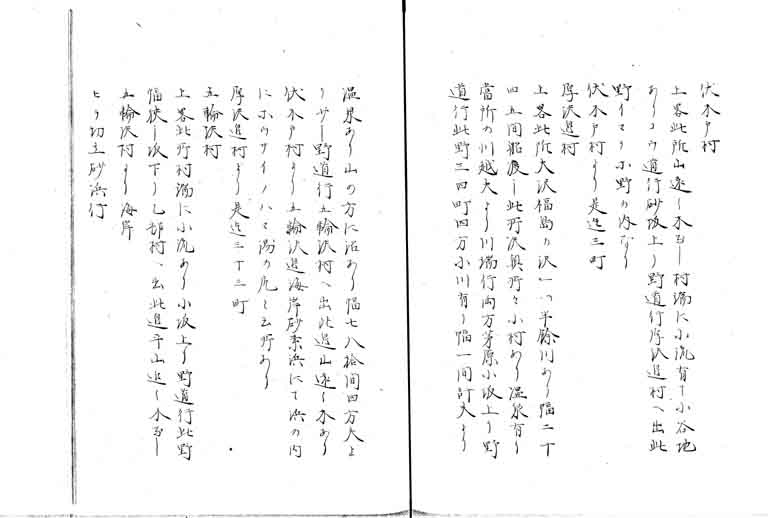 伏木戸村
上畧此所山遠し木なし村端に小流有り小谷地
ありコウ道行砂坂上り野道行厚沢邊村へ出此
野イマリ小野の内なり
伏木戸村より是迄三町
厚沢邊村
上畧此所大沢福島の沢一の平餘川あり幅二丁
四五間船渡し此所沢奥所々小村あり温泉有り
當所の川越大より川端行両方茅原小坂上り野
道行此野三四町四方小川有り幅一間計大より
温泉あり山の方に沼あり幅七八拾間四方大よ
り少し野道行五輪沢村へ出此邊山遠し木あり
伏木戸村より五輪沢邊海岸砂素浜にて浜の内
にホウサイノハマ湯の尻と云所あり
厚沢邊村より是迄三丁三町
五輪沢村
上畧此所村端に小流あり小坂上り野道行此野
幅狭し坂下り乙部村へ出此邊平山近し木なし
五輪沢村より海岸
ヒラ切立砂浜行